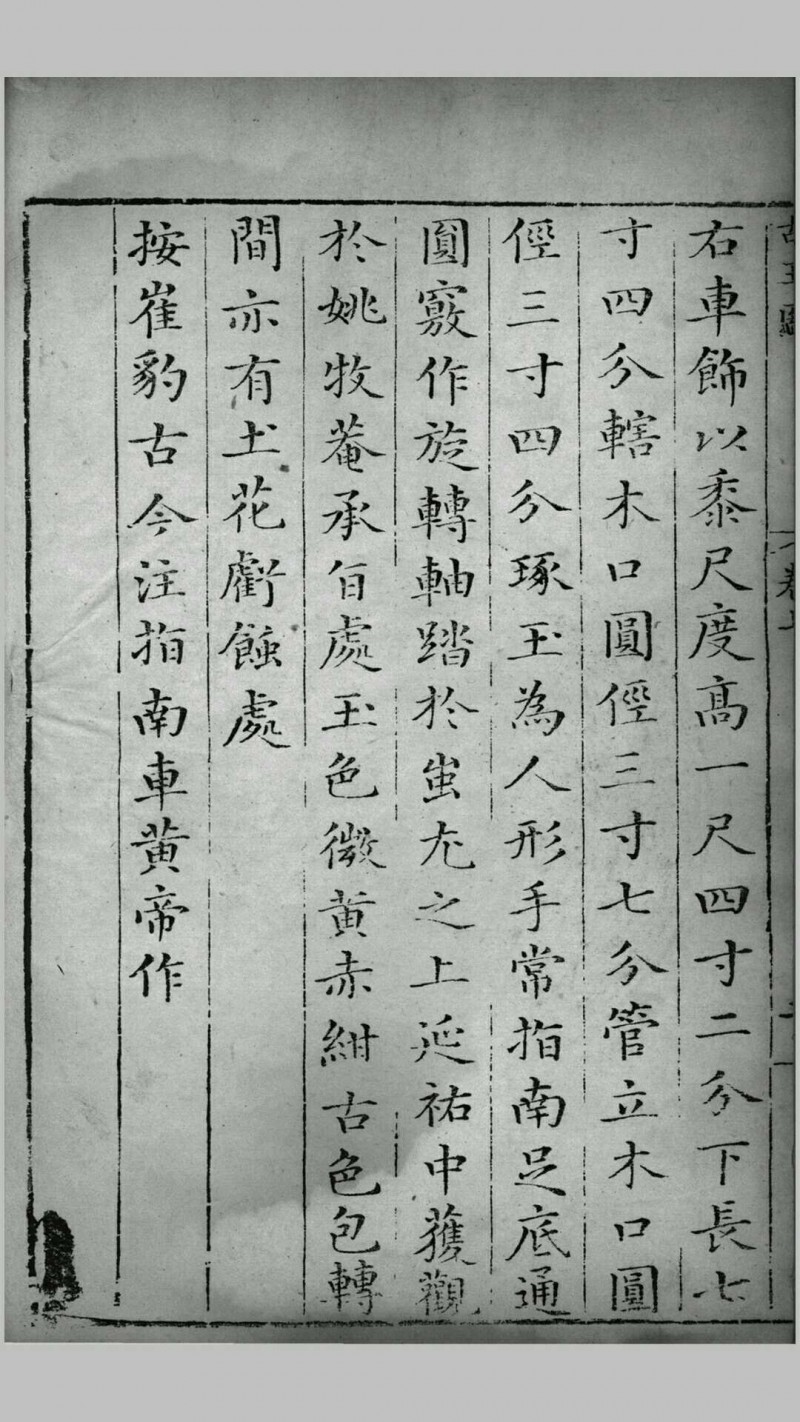 右車飾以黍尺度髙一尺四寸二分下長七
寸四分轄木口圓徑三寸七分管立木口圓
徑三寸四分琢玉為人形手常指南足底通
圓竅作旋轉軸踏於蚩尤之上延祐中獲觀
於姚牧菴承旨處玉色微黄赤紺古色包轉
間亦有土花虧蝕處
按崔豹古今注指南車黄帝作